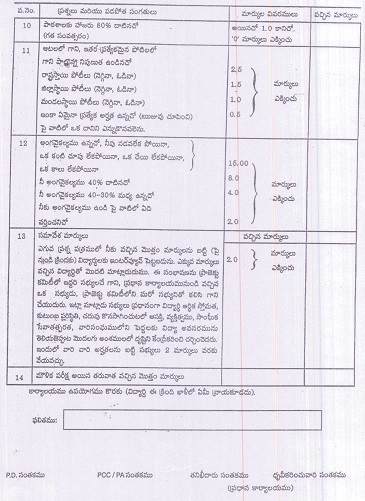 వ.నెం. ప్రశ్నలు మరియు పదపోత సంగతులు మార్కుల వివరములు వచ్చిన మార్కులు
10 పాఠశాలకు హాజరు 80% దాటినచో అయినచో 1.0 కానిచో.
(గత సంవత్సరం) '0' మార్కులు ఎక్కించు
11 ఆటలలో గాని, ఇతర ప్రత్యేకమైన పోటిలలో
గాని నిపుణుత ఉండినచో
రాష్ట్రస్థాయి పోటీలు (నెగ్గినా, ఓడినా) 2.5
జిల్లాస్థాయి పోటీలు (నెగ్గినా, ఓడినా) 1.5 మార్కులు
మండలస్థాయి పోటీలు (నెగ్గినా, ఓడినా) 1.0 ఎక్కించు
ఇంకా ఏమైనా ప్రత్యేక అర్హత ఉన్నచో (ఋజువు చూపించి) 0.5
పై వాటిలో ఒక దానిని ఎన్నుకొనవలెను.
12 అంగవైకల్యము ఉన్నచో, నీవు నడవలేక పోయినా,
ఒక కంటి చూపు లేకపోయినా, ఒక చేయి లేకపోయినా
ఒక కాలు లేకపోయినా 15.00
నీ అంగవైకల్యము 40% దాటినచో 8.0 మార్కులు
నీ అంగవైకల్యము 40-30% మధ్య ఉన్నచో 4.0 ఎక్కించు
నీకు అంగవైకల్యము ఉండి పై వాటిలో ఏది
వర్తించనిచో 2.0
13 సమావేశ మార్కులు వచ్చిన మార్కులు
ఎగువ ప్రశ్న పత్రములో నీకు వచ్చిన మొత్తం మార్కులను బట్టి (పై
నుండి క్రిందకు) విద్యార్థులకు ఇంటర్వ్యూకి పెట్టబడును. ఎక్కువ మార్కులు 2.0 మార్కులు
వచ్చిన విద్యార్థితో మొదట మాట్లాడుదుము. ఈ సంభాషణను ప్రాజెక్టు ఎక్కించు
కమిటీలో ఇద్దరి సభ్యులచే గాని, ప్రధాన కార్యాలయమునుండి వచ్చిన
ఒక సభ్యుడు, ప్రాజెక్టు కమిటీలోని మరో సభ్యునితో కలిసి గాని
చేయుదురు. ఇట్లా మాట్లాడు సభ్యులు ప్రధానంగా విద్యార్థి ఆర్థిక స్తోమత,
కుటుంబ పరిస్థితి, చదువు కొనసాగించుటలో ఆసక్తి, వ్యక్తిత్వము, సాంఘిక
సేవాతత్పరత, వారిసంఘములోని పెద్దలకు విద్యా అవసరమును
తెలియజెప్పుట మొదలగు అంశములలో దృష్టిని కేంద్రీకరించి చర్చించెదరు.
ఇందులో వారి వారి అర్హతలను బట్టి సభ్యులు 2 మార్కులు వరకు
వేయవచ్చు.
14 మౌలిక పరీక్ష అయిన తరువాత వచ్చిన మొత్తం మార్కులు
కార్యాలయము ఉపయోగము కొరకు (విద్యార్థి ఈ క్రింది ఖాళీలో ఏమీ వ్రాయకూడదు).
ఫలితము:
P.D. సంతకము PCC / PA సంతకము తనిఖీదారు సంతకము ధృవీకరించువారి సంతకము
(ప్రధాన కార్యాలయము)